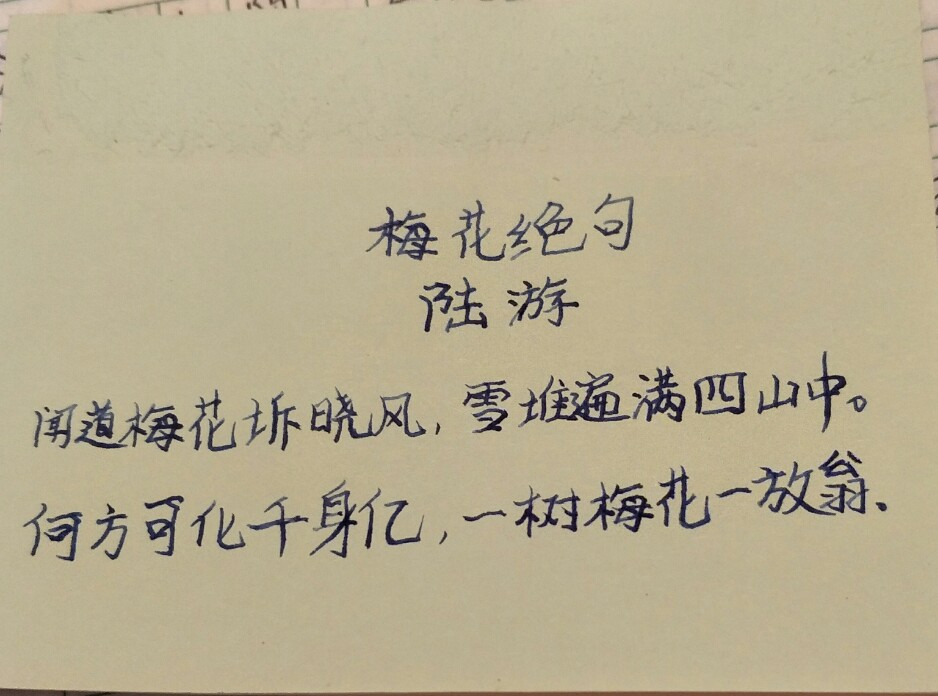 梅花绝句
陆游
闻道梅花坼晓风,雪堆遍满四山中。
何方可化千身亿,一树梅花一放翁。